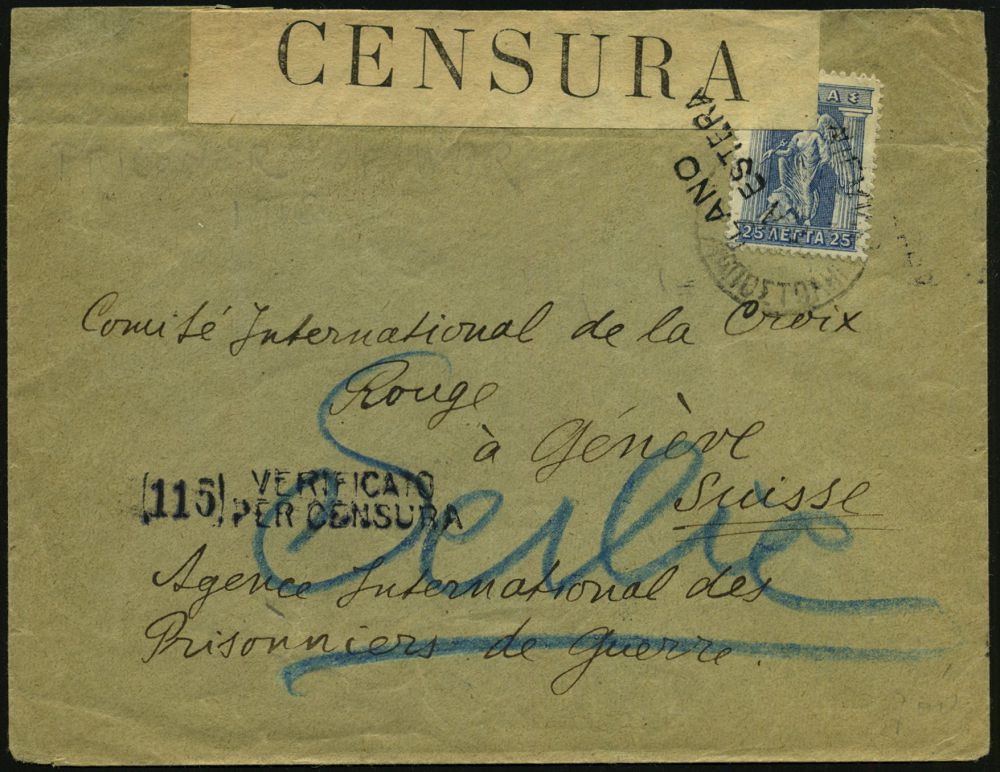 CENSURA
ΑΣ
LANO
ESTERA
25 ΛΕΠΤΑ 25
Comité International de la Croix
Rouge
à Génève
Suisse
(115) VERIFICATO
PER CENSURA
Serbie
Agence International des
Prisonniers de Guerre.